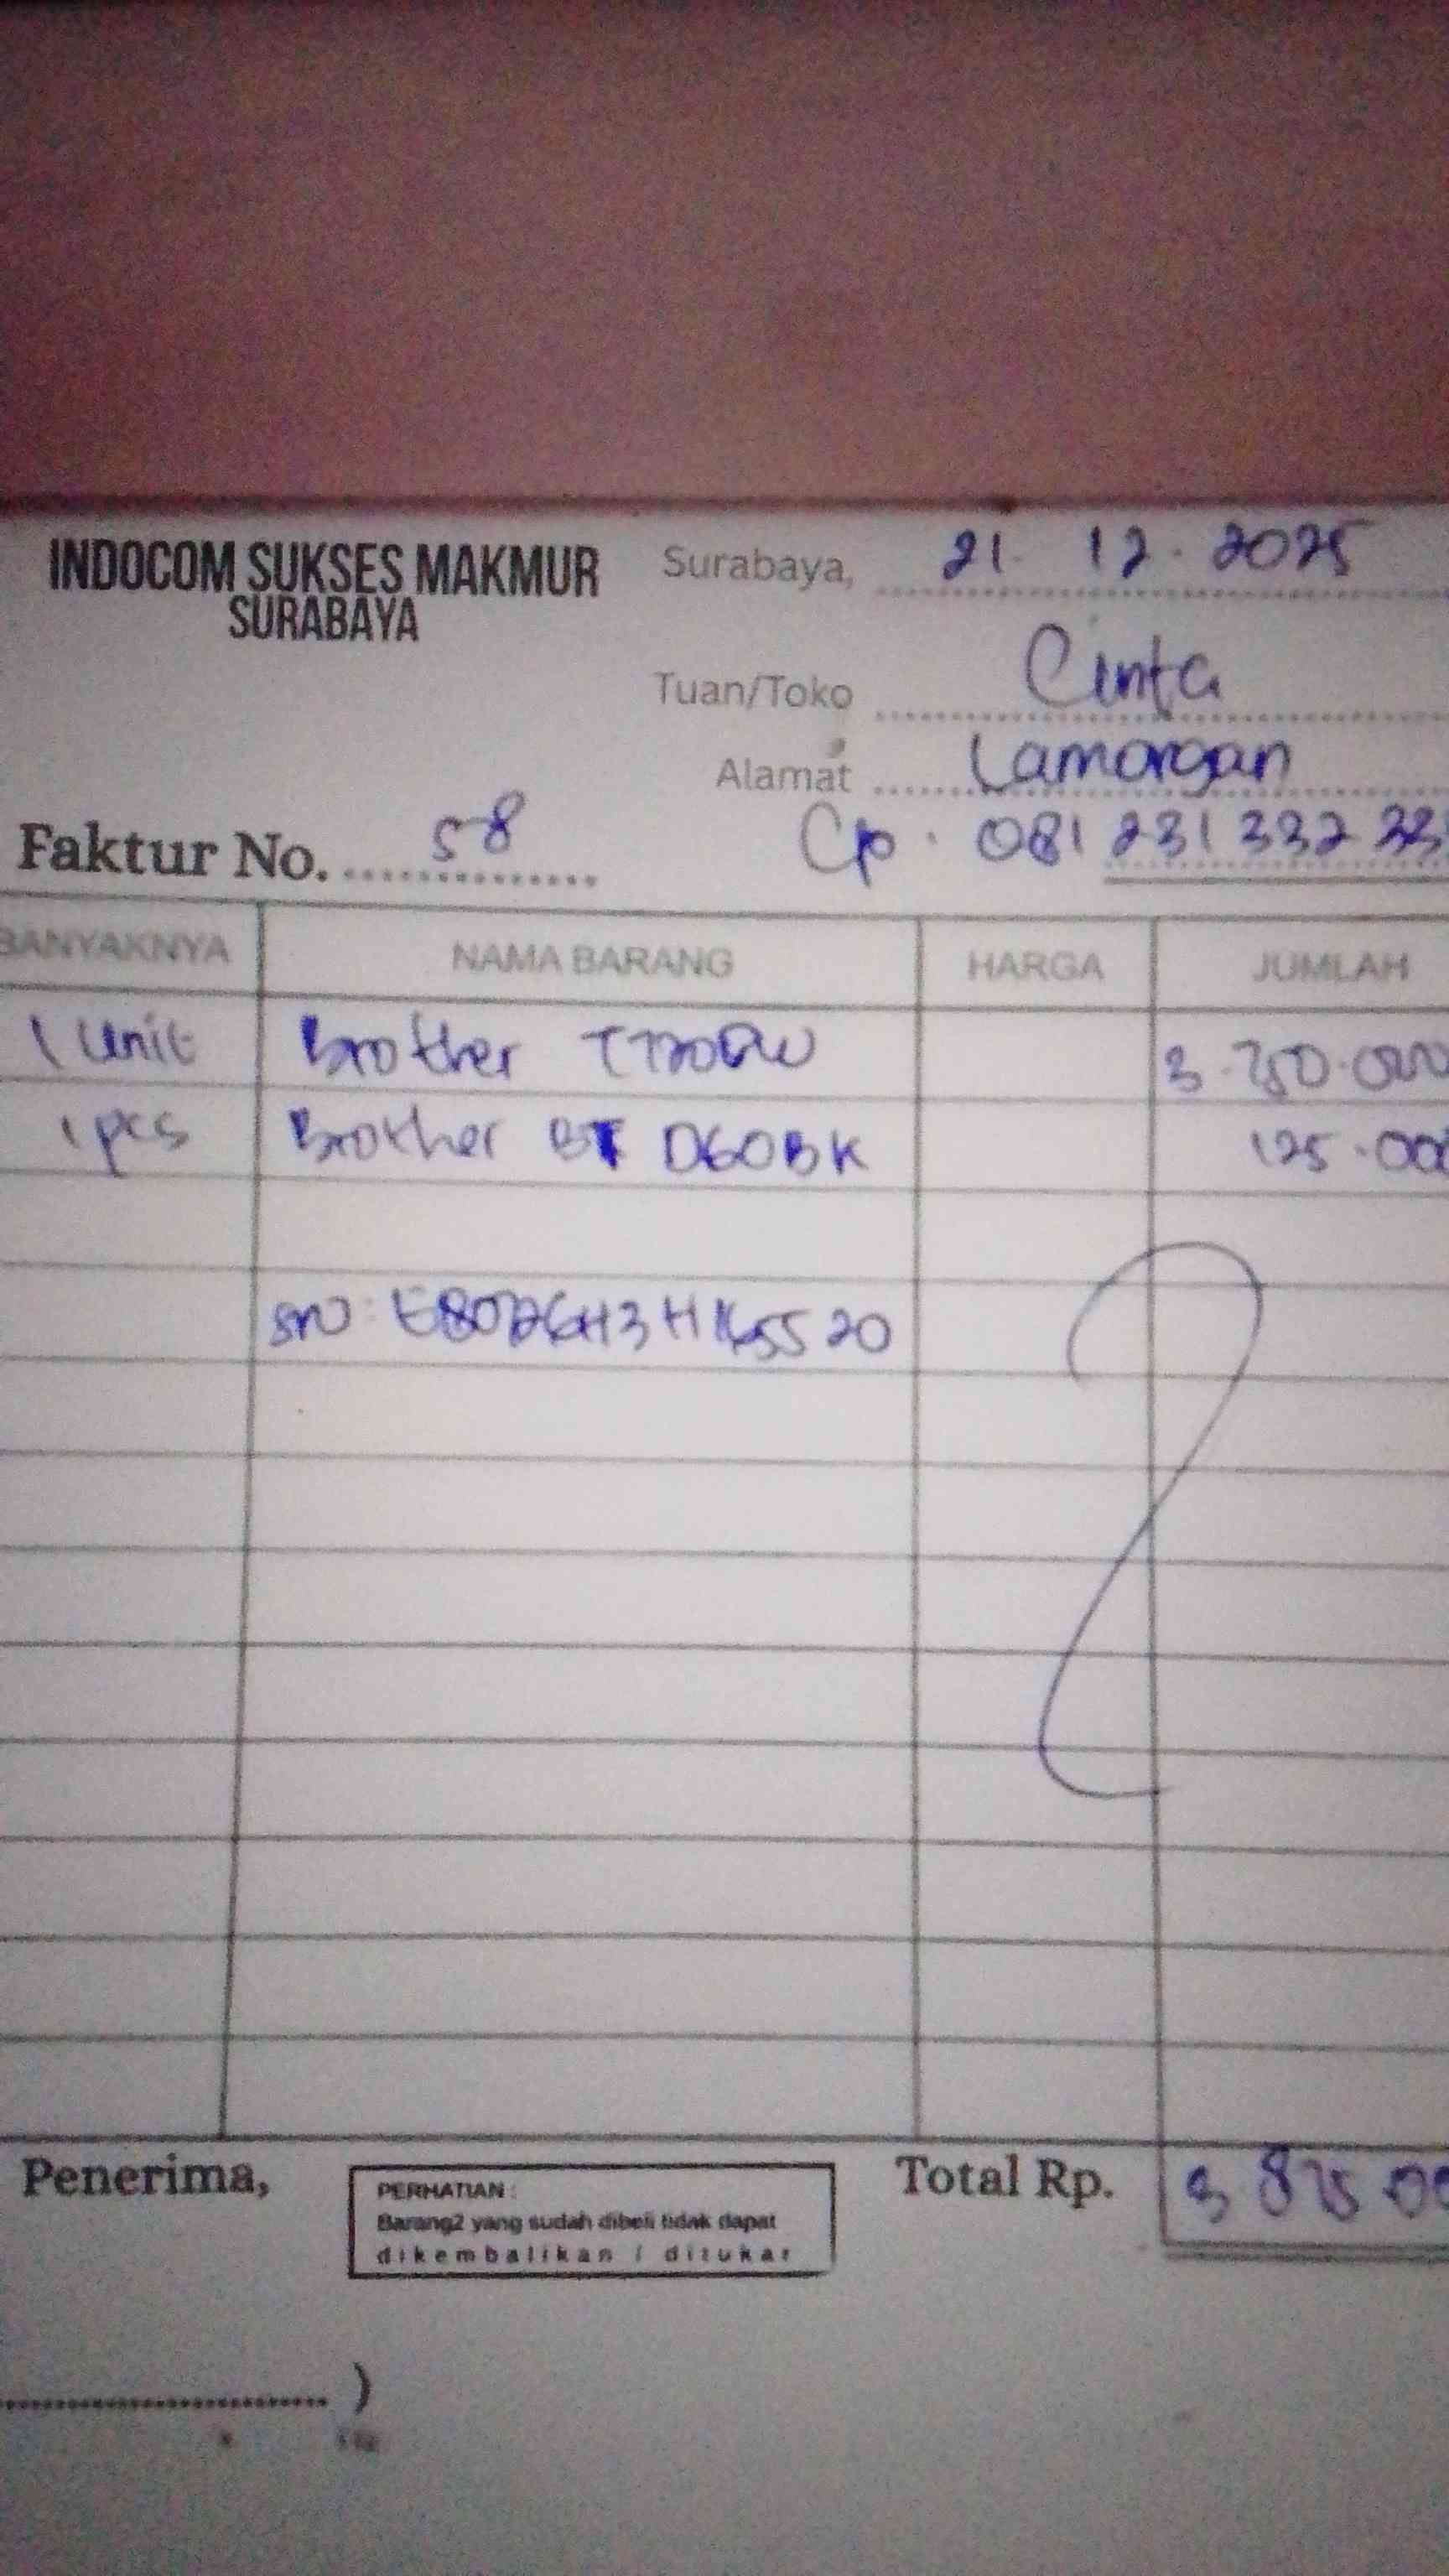 INDOCOM SUKSES MAKMUR
SURABAYA
Surabaya, 21. 12. 2025
Tuan/Toko Cinta
Alamat Lamongan
Faktur No. 58
Cp. 081 231 332 33
BANYAKNYA NAMA BARANG HARGA JUMLAH
1 Unit Brother T720DW 3.750.000
1 pcs Brother BT D60BK 125.000
SN:
Penerima,
PERHATIAN :
Barang2 yang sudah dibeli tidak dapat
dikembalikan / ditukar
Total Rp. 3 875 00
)